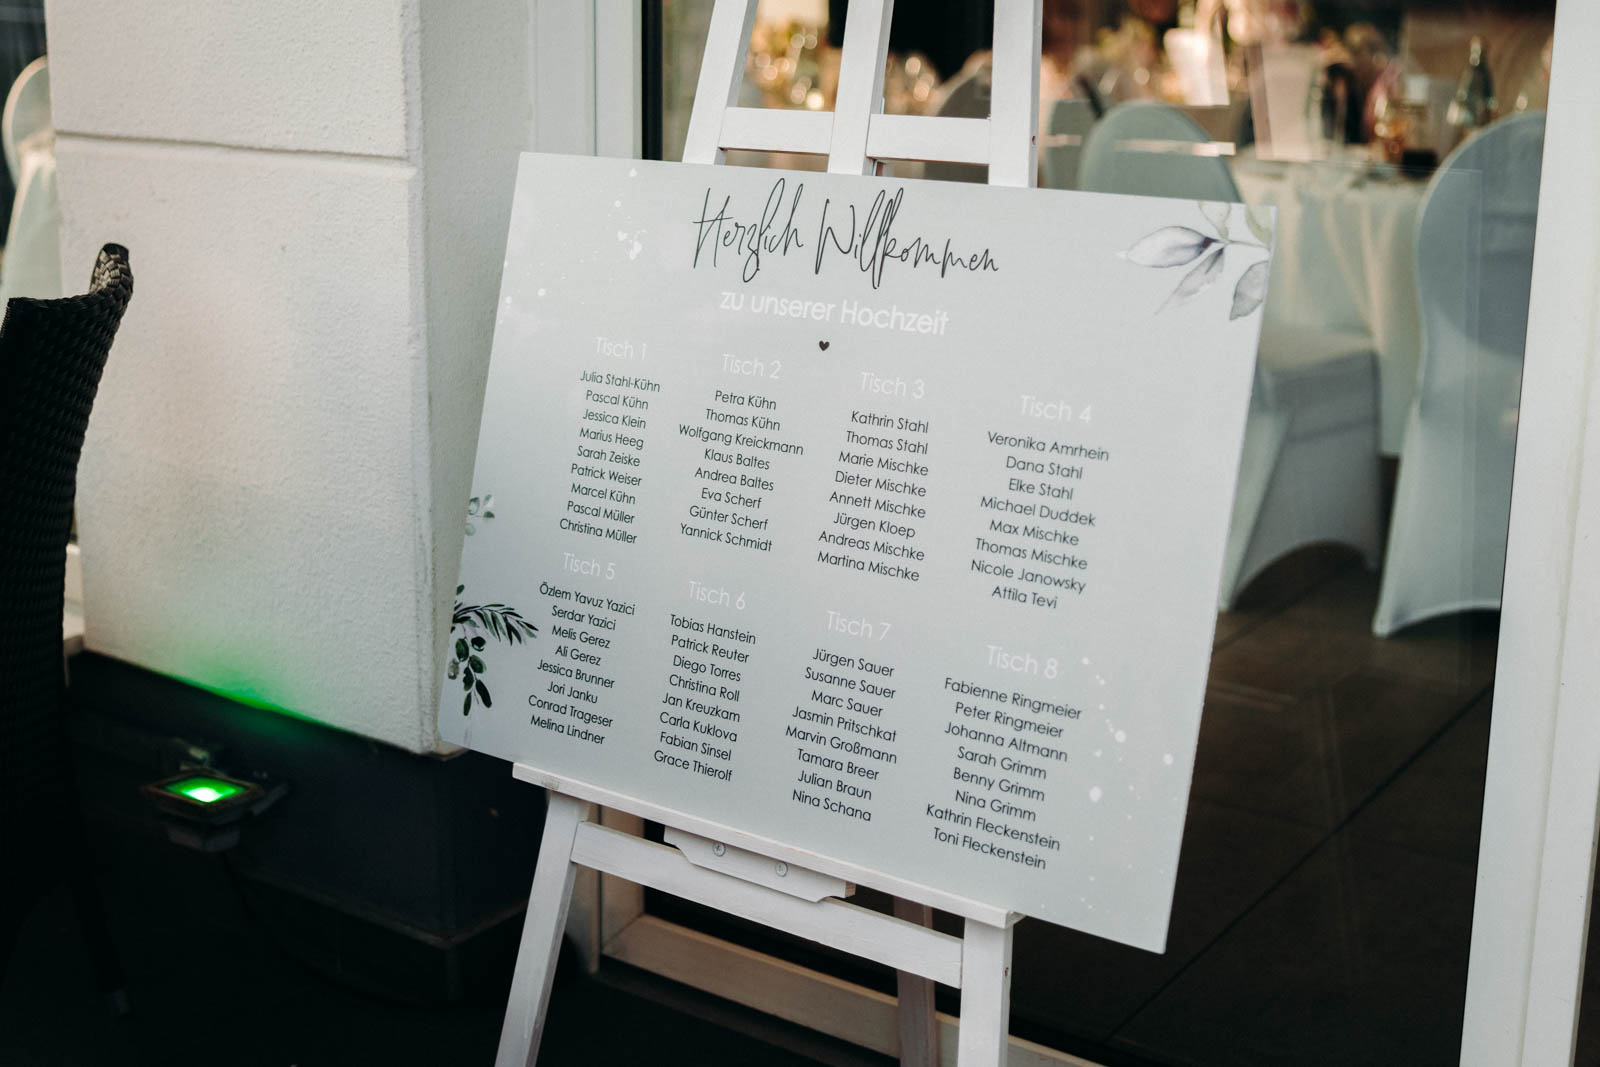 Herzlich Willkommen
zu unserer Hochzeit
Tisch 1
Julia Stahl-Kühn
Pascal Kühn
Jessica Klein
Marius Heeg
Sarah Zeiske
Patrick Weiser
Marcel Kühn
Pascal Müller
Christina Müller
Tisch 2
Petra Kühn
Thomas Kühn
Wolfgang Kreickmann
Klaus Baltes
Andrea Baltes
Eva Scherf
Günter Scherf
Yannick Schmidt
Tisch 3
Kathrin Stahl
Thomas Stahl
Marie Mischke
Dieter Mischke
Annett Mischke
Jürgen Kloep
Andreas Mischke
Martina Mischke
Tisch 4
Veronika Amrhein
Dana Stahl
Elke Stahl
Michael Duddek
Max Mischke
Thomas Mischke
Nicole Janowsky
Attila Tevi
Tisch 5
Özlem Yavuz Yazici
Serdar Yazici
Melis Gerez
Ali Gerez
Jessica Brunner
Jori Janku
Conrad Trageser
Melina Lindner
Tisch 6
Tobias Hanstein
Patrick Reuter
Diego Torres
Christina Roll
Jan Kreuzkam
Carla Kuklova
Fabian Sinsel
Grace Thierolf
Tisch 7
Jürgen Sauer
Susanne Sauer
Marc Sauer
Jasmin Pritschkat
Marvin Großmann
Tamara Breer
Julian Braun
Nina Schana
Tisch 8
Fabienne Ringmeier
Peter Ringmeier
Johanna Altmann
Sarah Grimm
Benny Grimm
Nina Grimm
Kathrin Fleckenstein
Toni Fleckenstein